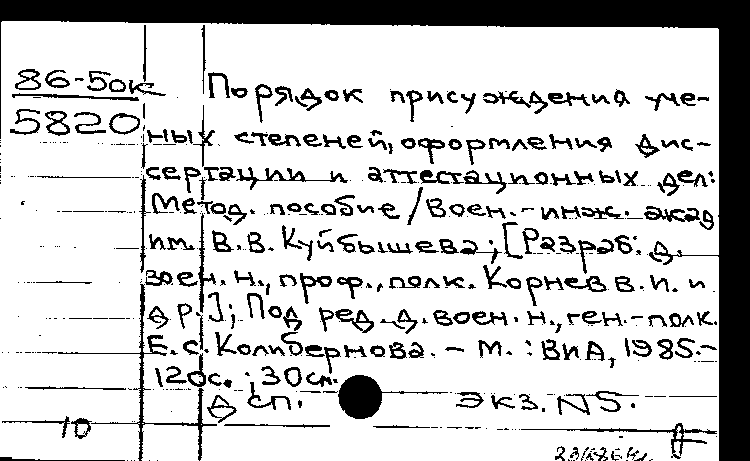 86-5ок Порядок присуждения уче-
5820 ных степеней, оформления дис-
сертации и аттестационных дел:
Метод. пособие / Воен.-инж. акад
им. В.В. Куйбышева; [Разраб. д.
воен. н., проф., полк. Корнев В.П. и
др.]; Под ред. д. воен. н., ген.-полк.
Е.С. Колибернова. - М. : ВИА, 1985.-
120с. ; 30см.
Д сп. экз. N5.
10